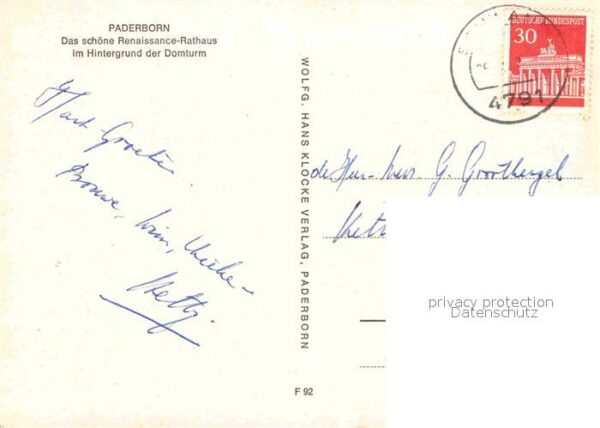 PADERBORN
Das schöne Renaissance-Rathaus
im Hintergrund der Domturm
Hart. Groeten
Bouwe, Wim,
Hetty.
WOLFG. HANS KLOCKE VERLAG, PADERBORN
F 92
DEUTSCHE BUNDESPOST
30
4791
G.
privacy protection
Datenschutz